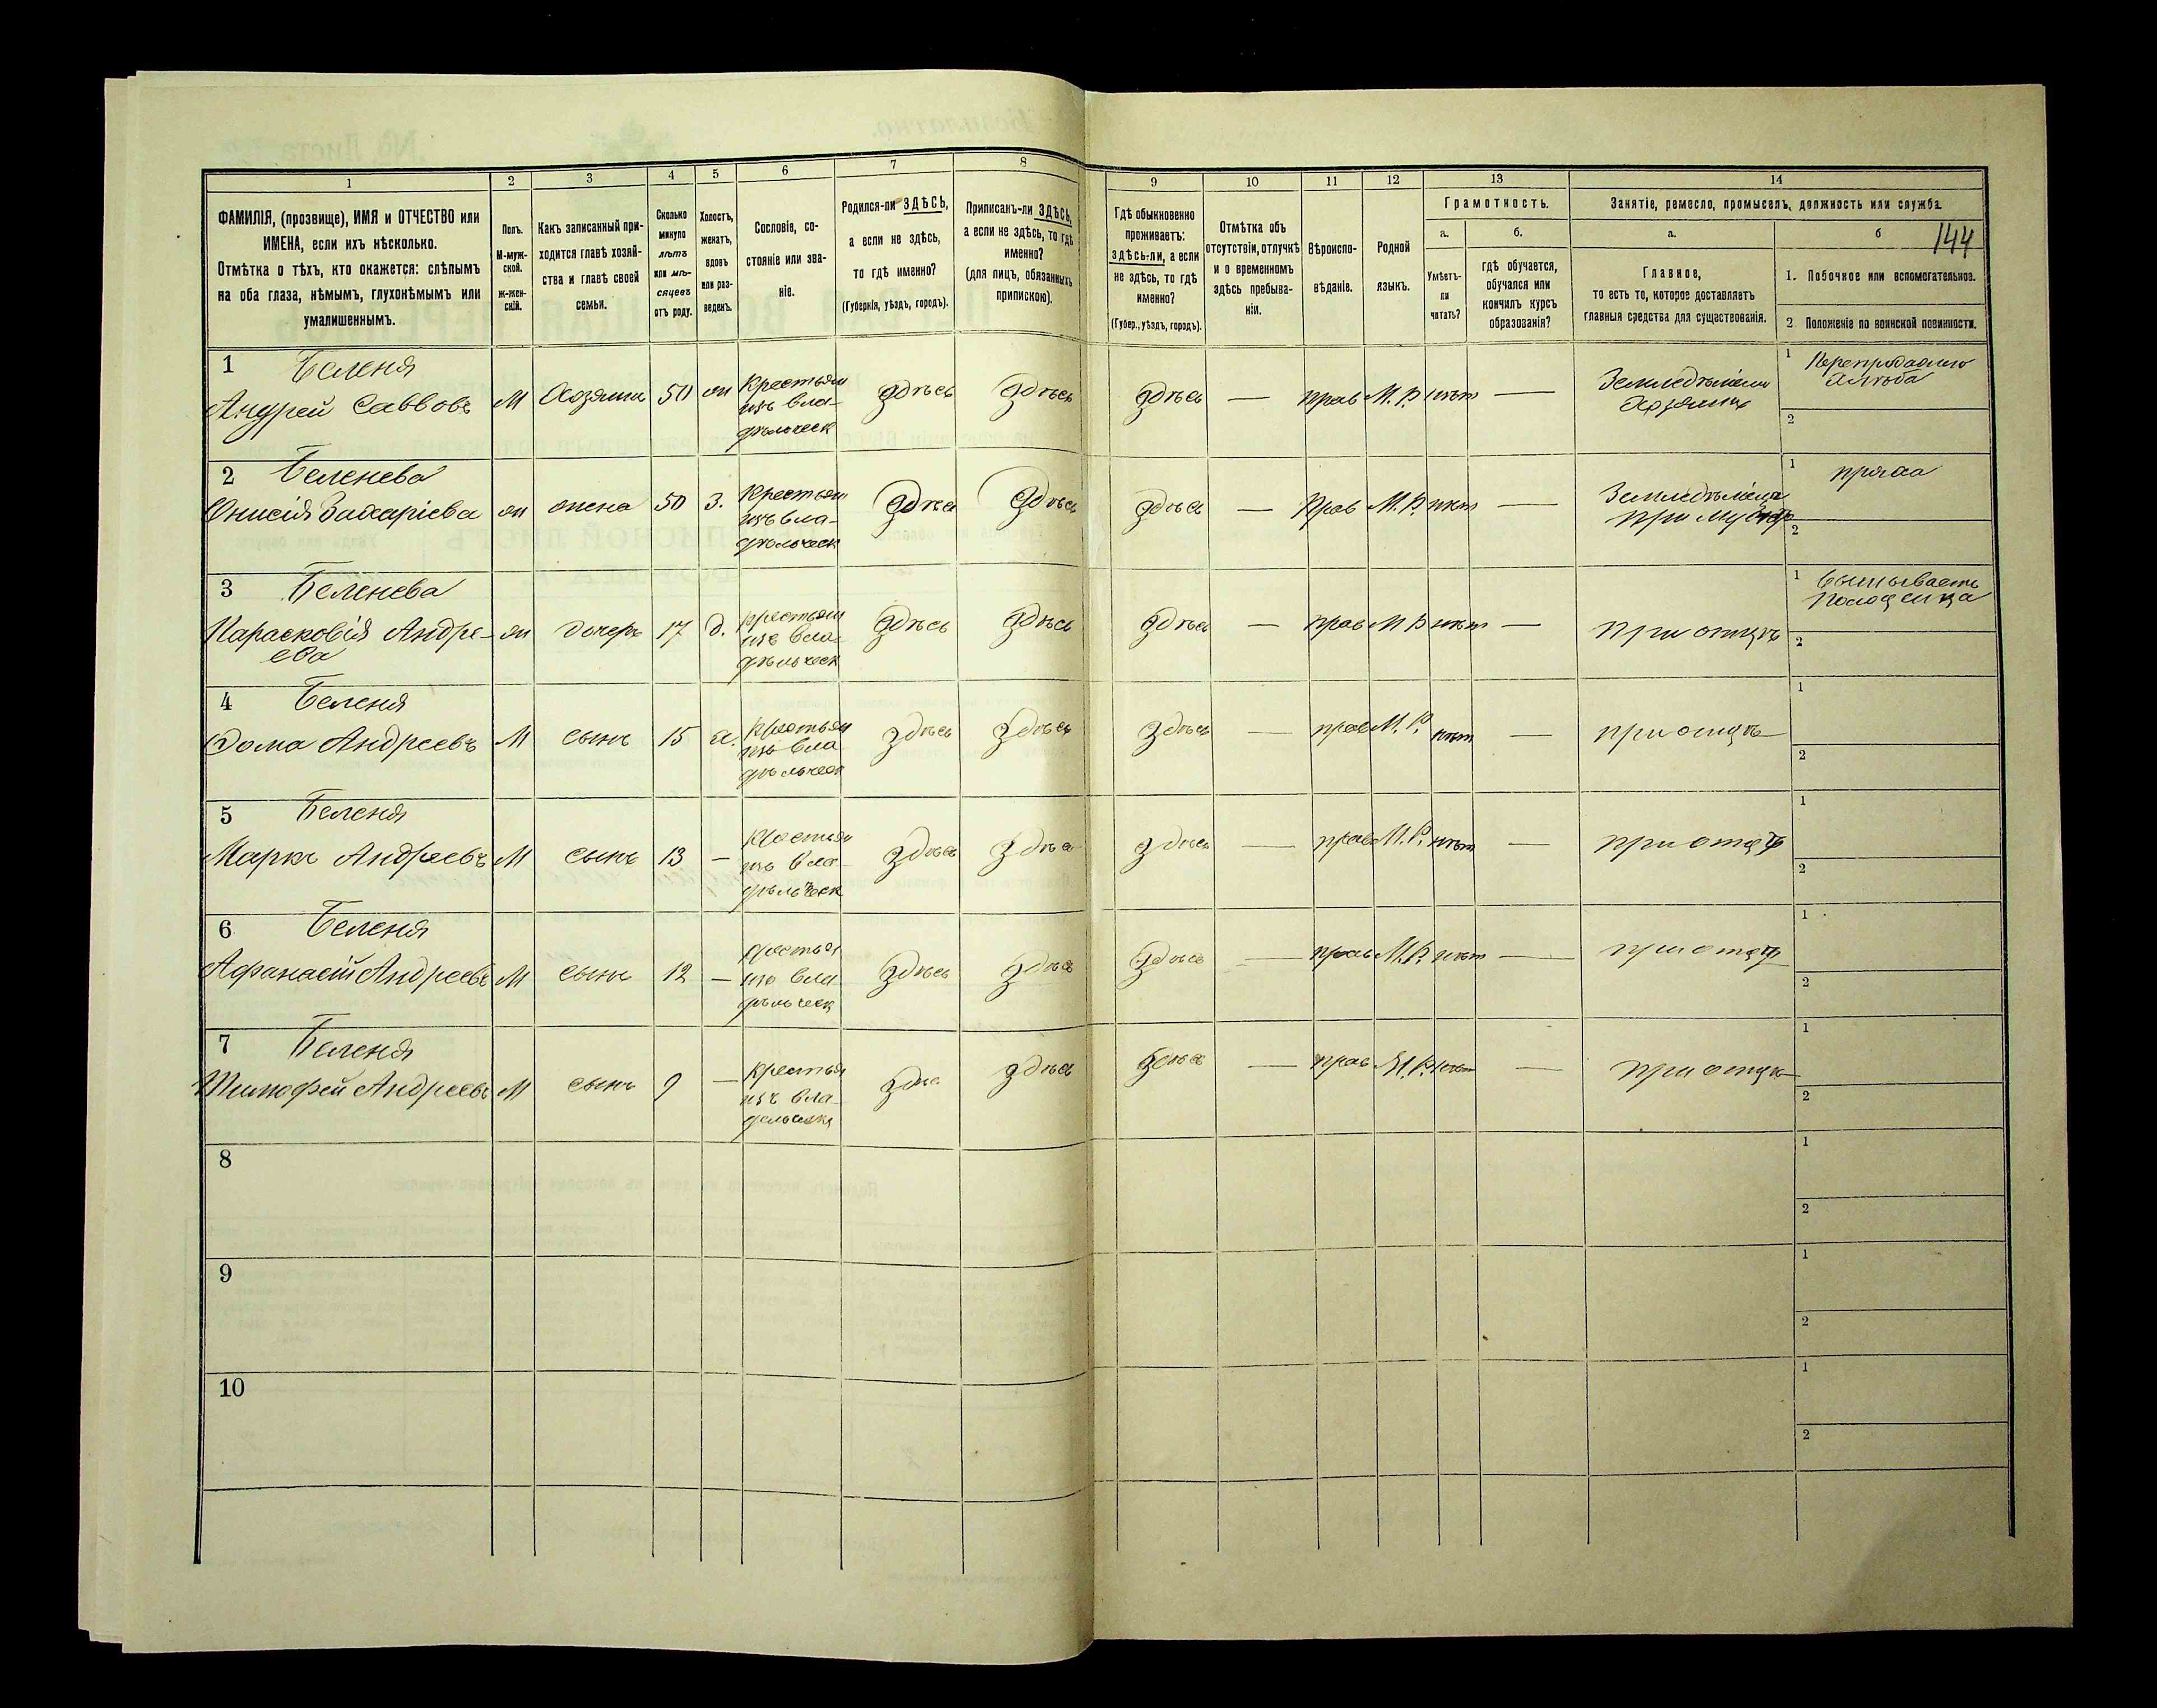 1 2 3 4 5 6 7 8 9 10 11 12 13 14
ФАМИЛІЯ, (прозвище), ИМЯ и ОТЧЕСТВО или
ИМЕНА, если ихъ нѣсколько.
Отмѣтка о тѣхъ, кто окажется: слѣпымъ
на оба глаза, нѣмымъ, глухонѣмымъ или
умалишеннымъ.
Полъ.
М-муж-
ской.
Ж-жен-
скій.
Какъ записанный при-
ходится главѣ хозяй-
ства и главѣ своей
семьи.
Сколько
минуло
лѣтъ
или мѣ-
сяцевъ
отъ роду.
Холостъ,
женатъ,
вдовъ
или раз-
веденъ.
Сословіе, со-
стояніе или зва-
ніе.
Родился-ли ЗДѢСЬ,
а если не здѣсь,
то гдѣ именно?
(Губернія, уѣздъ, городъ).
Приписанъ-ли ЗДѢСЬ,
а если не здѣсь, то гдѣ
именно?
(для лицъ, обязанныхъ
припискою).
Гдѣ обыкновенно
проживаетъ:
здѣсь-ли, а если
не здѣсь, то гдѣ
именно?
(Губер., уѣздъ, городъ).
Отмѣтка объ
отсутствіи, отлучкѣ
и о временномъ
здѣсь пребыва-
ніи.
Вѣроиспо-
вѣданіе.
Родной
языкъ.
Грамотность.
а.
Умѣетъ-
ли
читать?
б.
гдѣ обучается,
обучался или
кончилъ курсъ
образованія?
Занятіе, ремесло, промыселъ, должность или служба.
а.
Главное,
то есть то, которое доставляетъ
главныя средства для существованія.
б
144
1. Побочное или вспомогательное.
2 Положеніе по воинской повинности.
1 Беленя
Андрей Саввовъ М Хозяинъ 50 ж Крестьян
изъ вла-
дѣльческ
здѣсь здѣсь здѣсь — прав М. Р. нѣтъ —
Земледѣліемъ
Хозяинъ
1 Перепродажею
хлѣба
2
2 Беленева
Онисія Захаріева ж жена 50 З. Крестьян
изъ вла-
дѣльческ
здѣсь здѣсь здѣсь — Прав М. Р. нѣт —
при мужѣ
1 пряха
2
3 Беленева
Парасковія Андре-
ева
ж дочерь 17 д. крестьян
изъ вла-
дѣльческ
здѣсь здѣсь здѣсь — прав М Р нѣт —
при отцѣ
1 вышываетъ
полотенца
2
4 Беленя
Фома Андреевъ М сынъ 15 х. Крестьян
изъ вла
дѣльческ
здѣсь здѣсь здѣсь — прав М. Р. нѣт — при отцѣ
1
2
5 Беленя
Маркъ Андреевъ М сынъ 13 — Крестьян
изъ вла-
дѣльческ
здѣсь здѣсь здѣсь — прав М. Р. нѣт — при отцѣ
1
2
6 Беленя
Афанасій Андреевъ М сынъ 12 — крестьян
изъ вла
дѣльческ
здѣсь здѣсь здѣсь — прав М. Р. нѣт — при отцѣ
1
2
7 Беленя
Тимофей Андреевъ М сынъ 9 — крестьян
изъ вла-
дельческ
здѣсь здѣсь здѣсь — прав М. Р. нѣт — при отцѣ
1
2
8
1
2
9
1
2
10
1
2